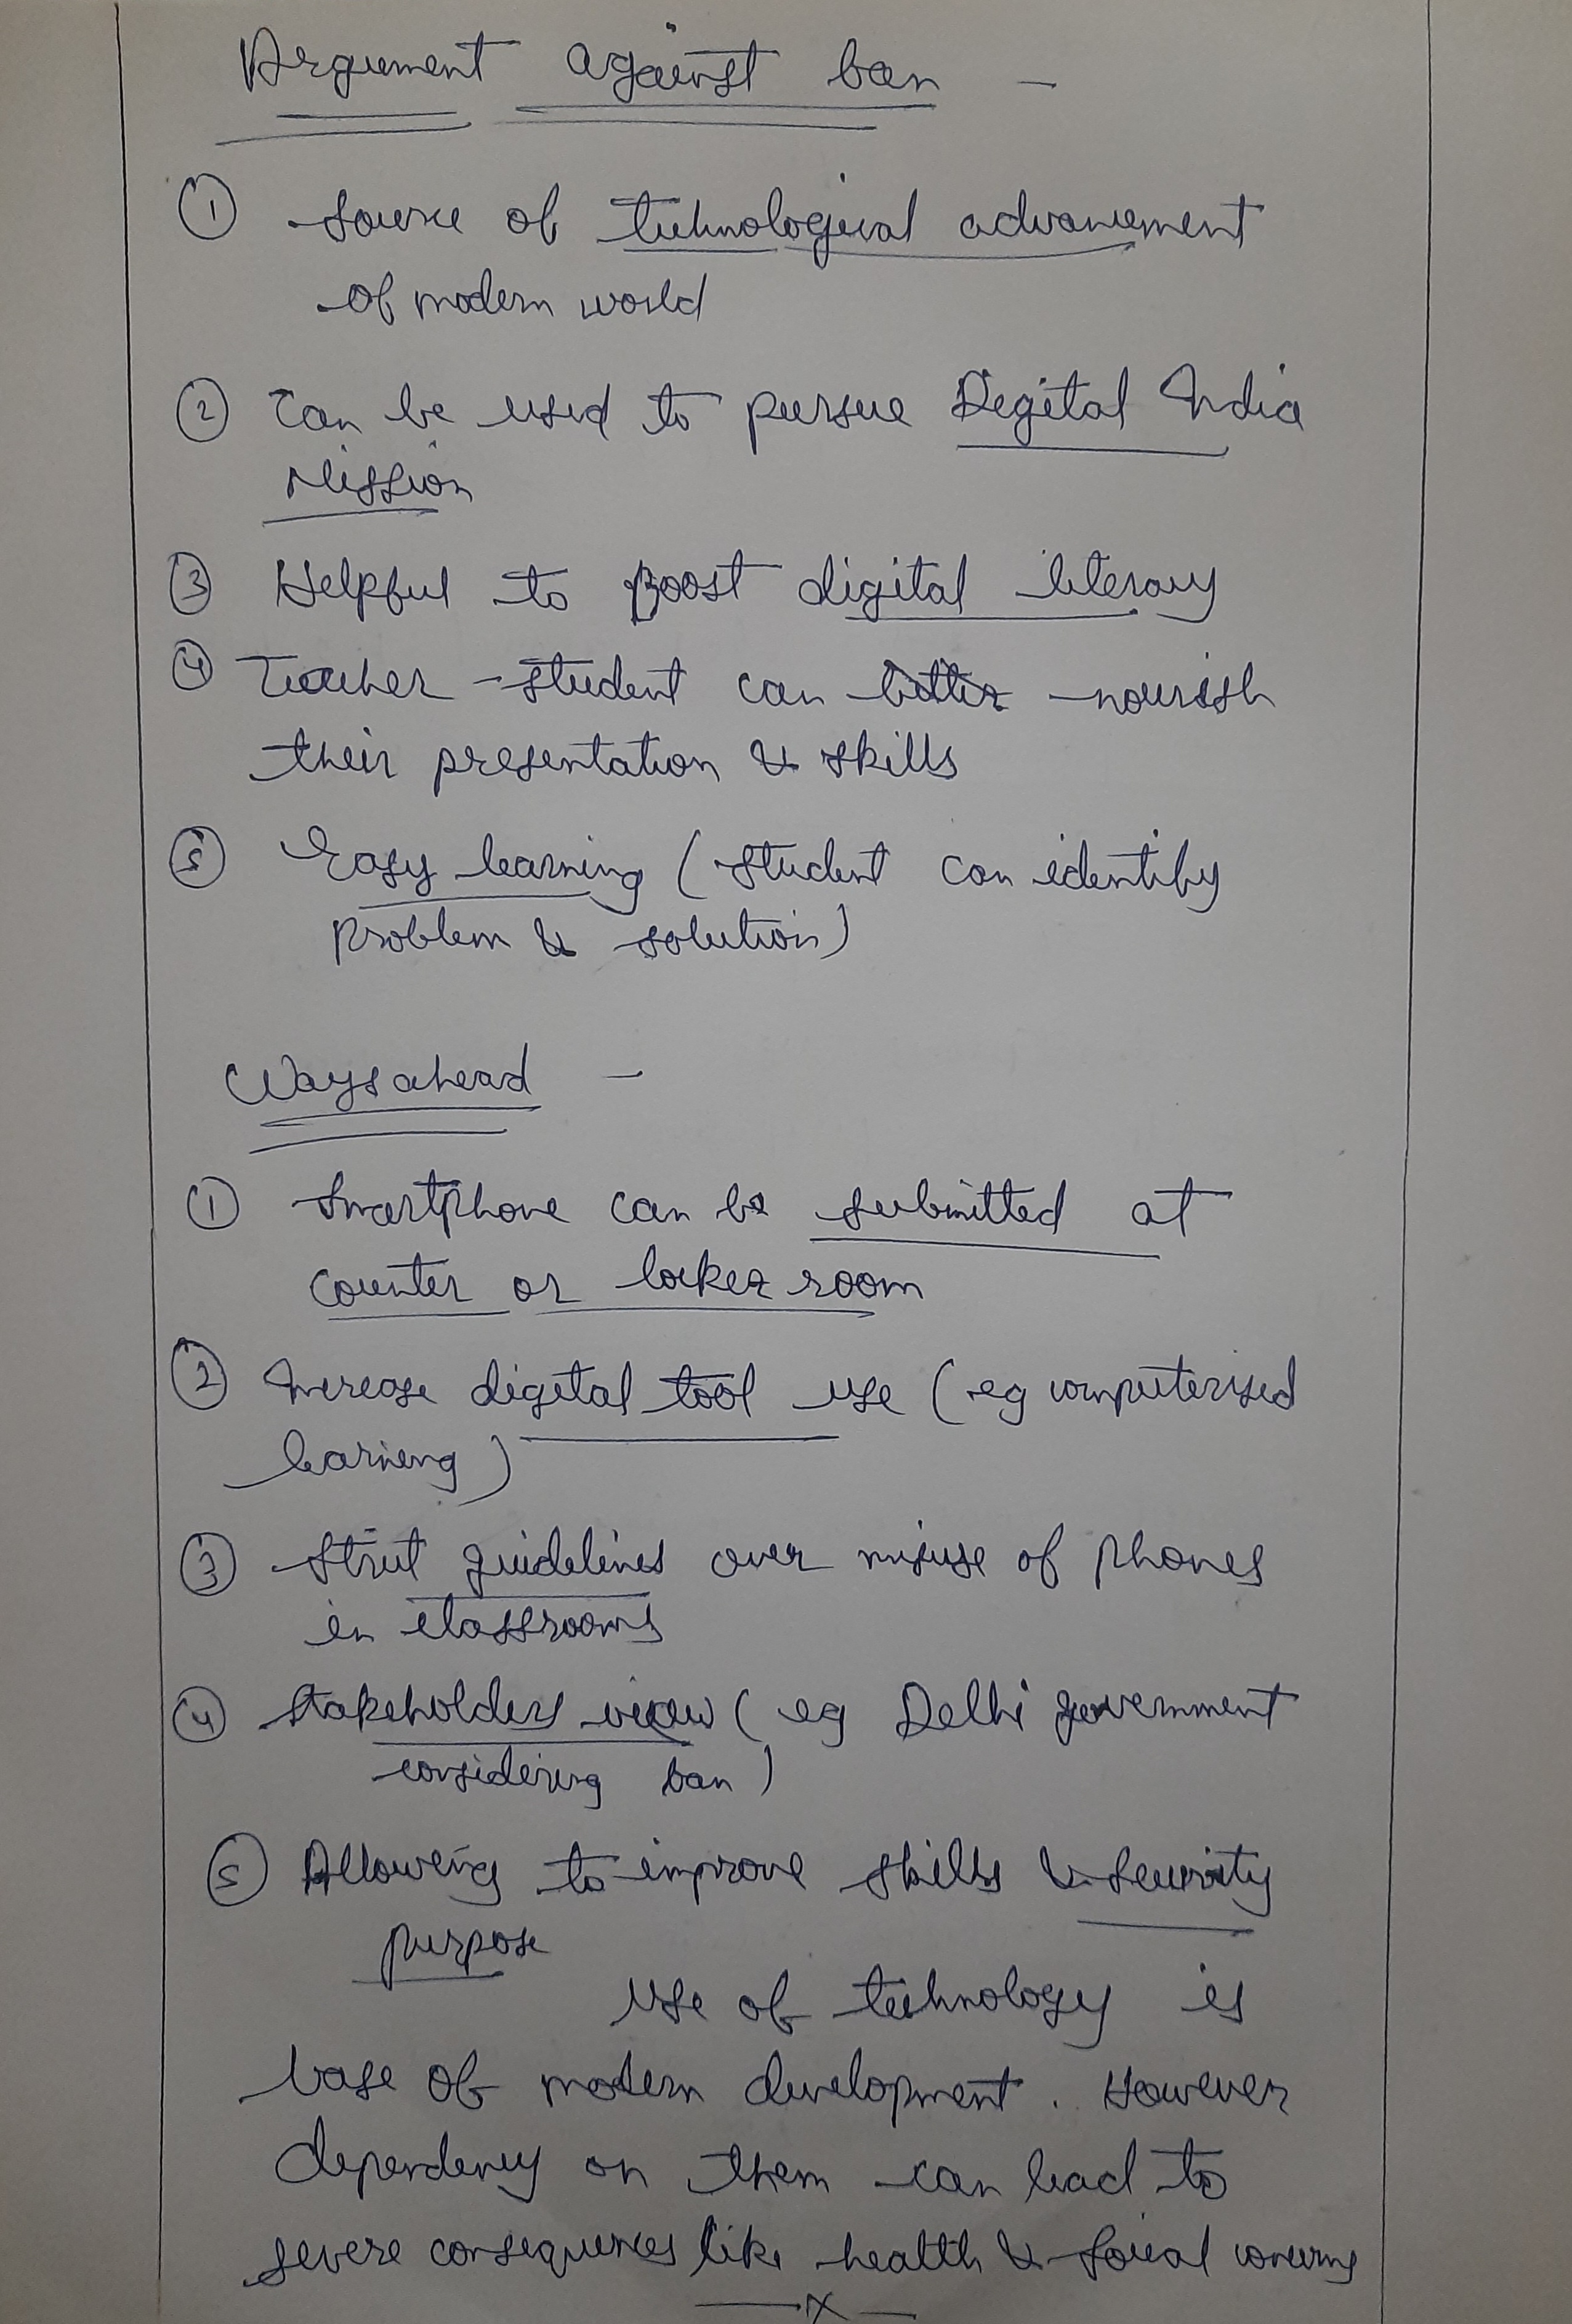 Argument against ban -
① Source of technological advancement
of modern world
② Can be used to pursue Digital India
Mission
③ Helpful to Boost digital literacy
④ Teacher - student can better nourish
their presentation & skills
⑤ Easy learning (student can identify
problem & solution)
Ways ahead -
① Smartphone can be submitted at
counter or locker room
② Increase digital tool use (eg computerised
learning)
③ Strict guidelines over misuse of phones
in classrooms
④ Stakeholders view (eg Delhi government
considering ban)
⑤ Allowing to improve skills & security
purpose
Use of technology is
base of modern development. However
dependency on them can lead to
severe consequences like health & social concerns
—x—